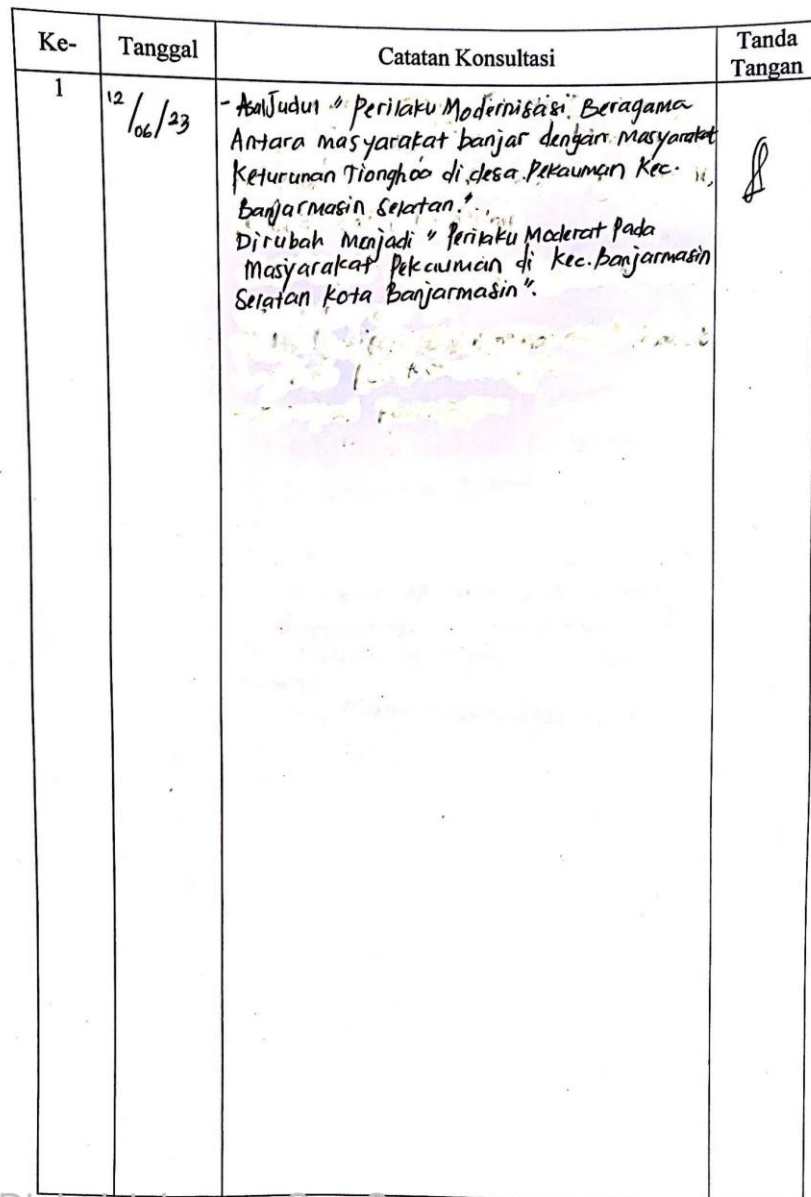 Ke- Tanggal Catatan Konsultasi Tanda Tangan
1 12/06/23 - Asal Judul " Perilaku Modernisasi Beragama
Antara masyarakat banjar dengan Masyarakat
Keturunan Tionghoa di desa Pekauman Kec.
Banjarmasin Selatan."
Dirubah Menjadi " Perilaku Moderat Pada
Masyarakat Pekauman di Kec. Banjarmasin
Selatan Kota Banjarmasin".